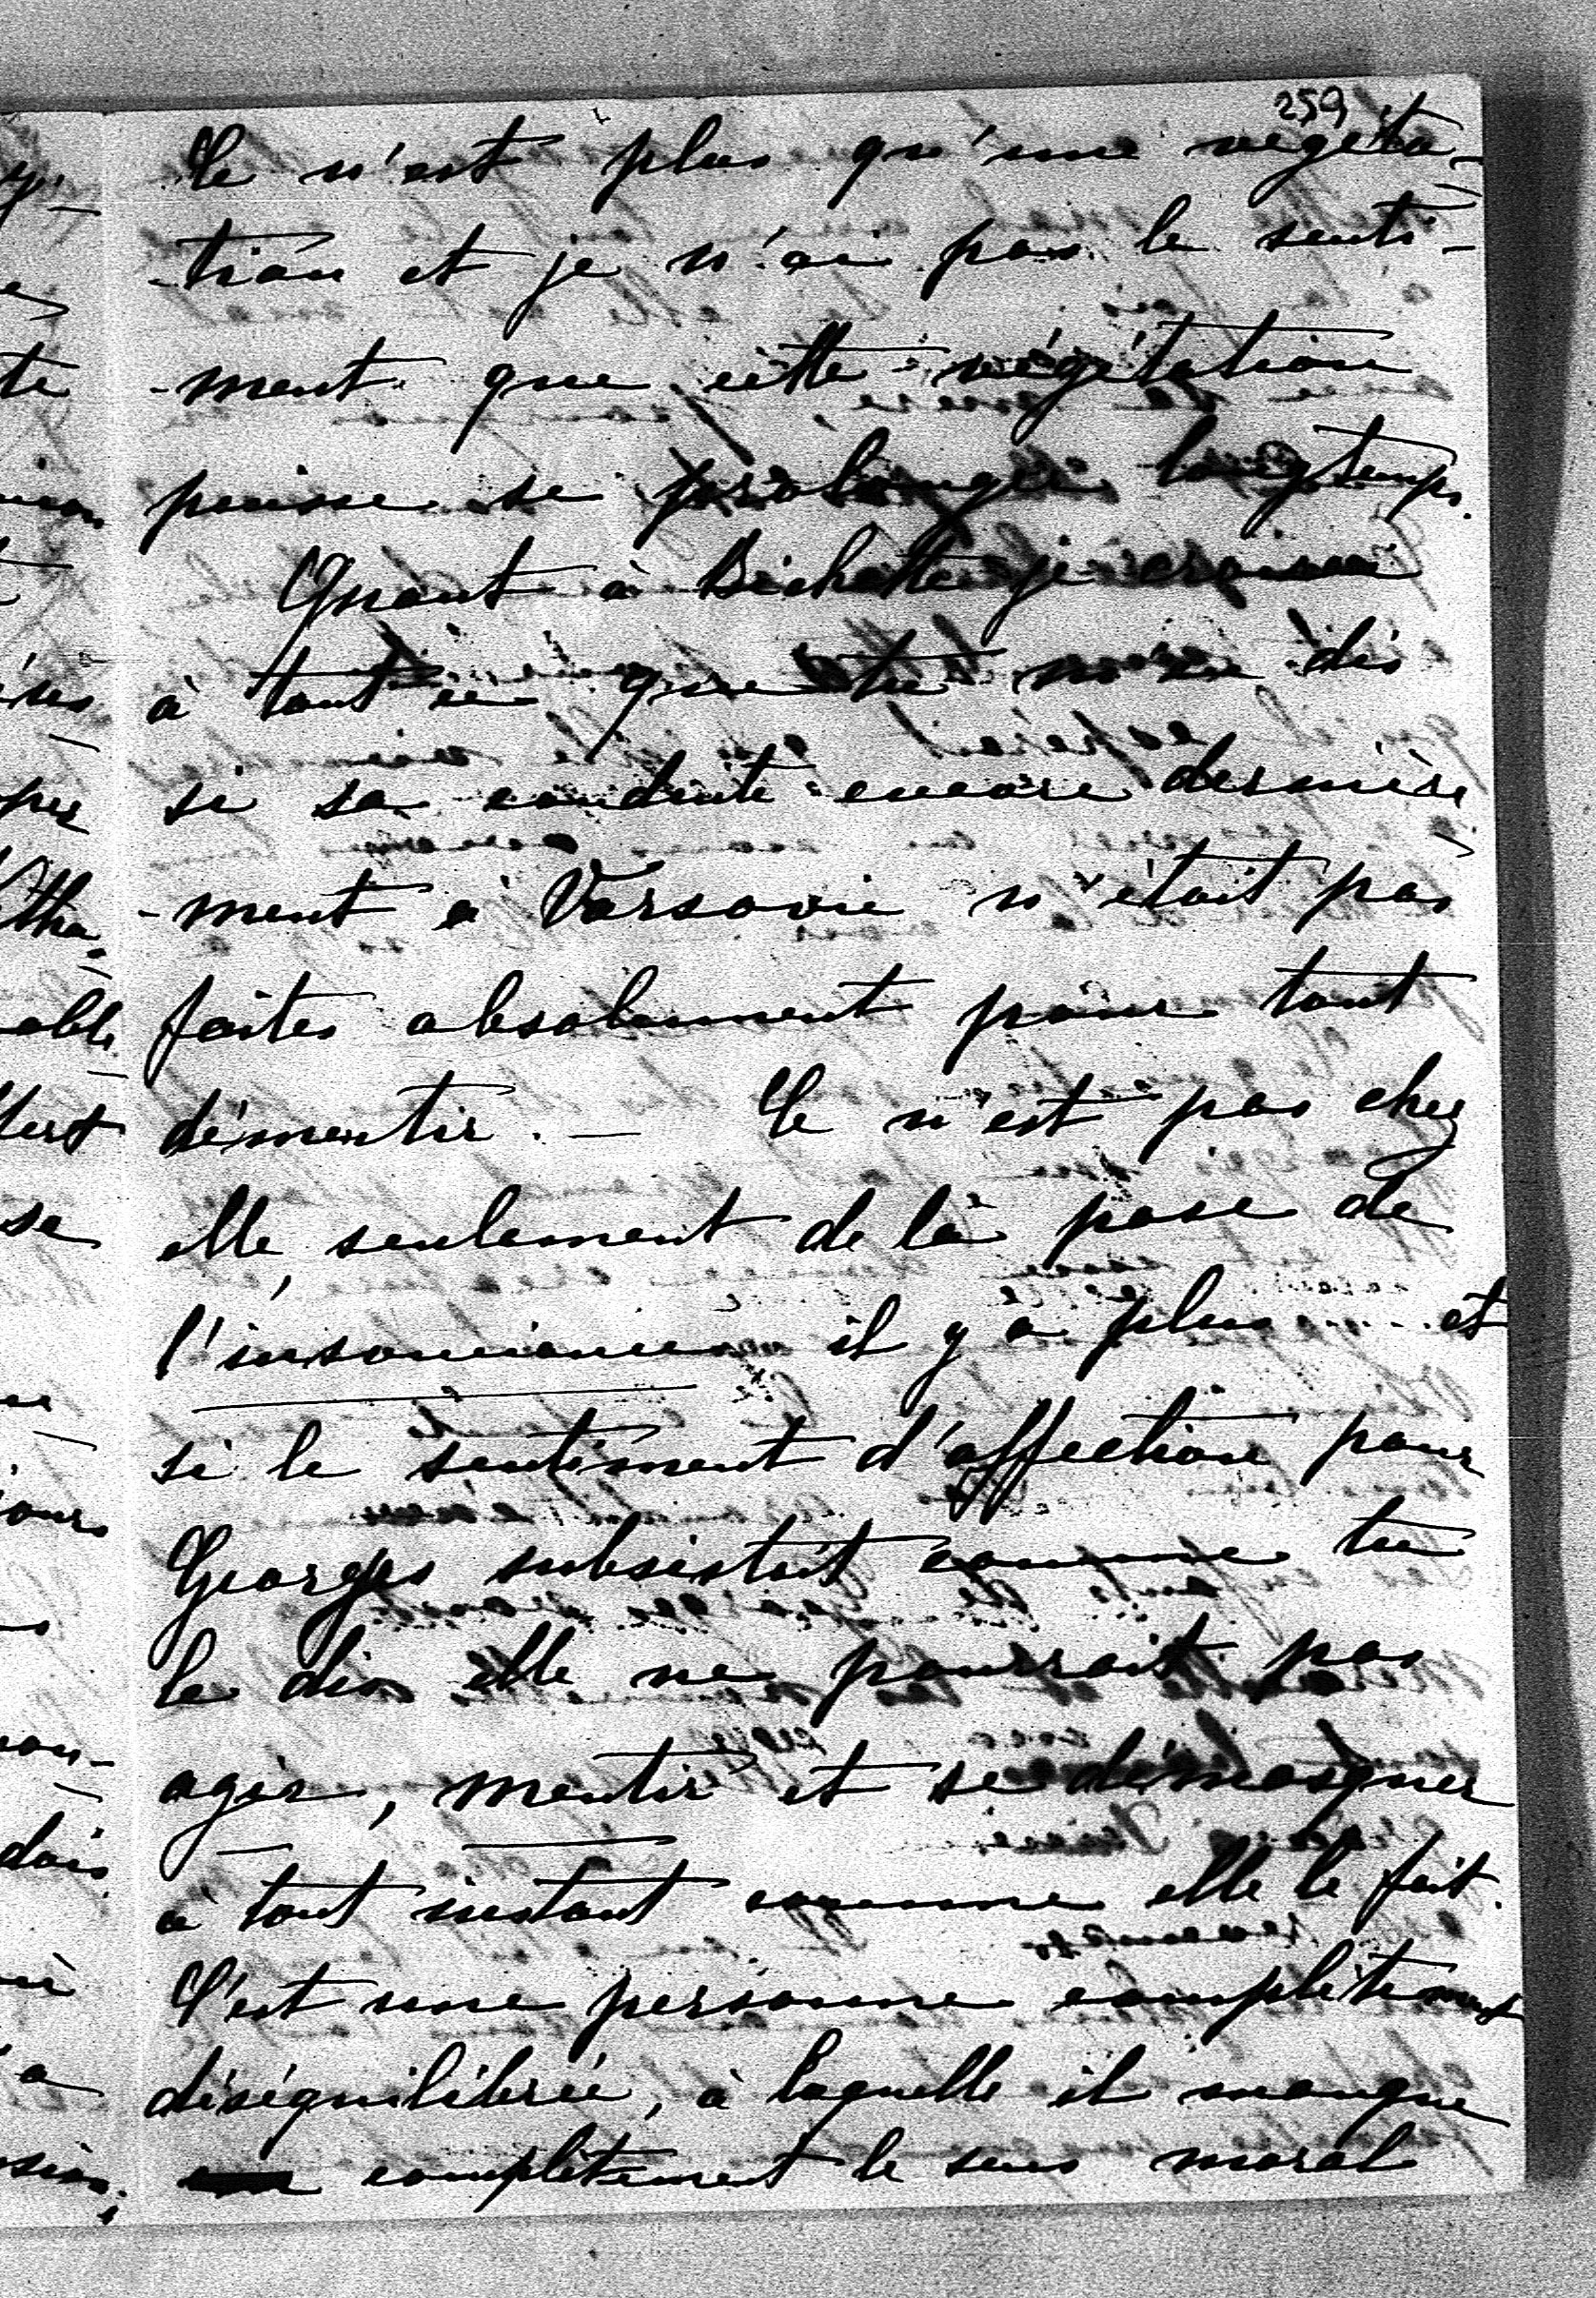 259
Ce n'est plus qu'une végéta-
-tion et je n'ai pas le senti-
-ment que cette végétation
puisse se prolonger longtemps.
Quant à Bichette je croirai
à tout ce que tu m'en dis
si sa conduite encore dernière
-ment à Varsovie n'était pas
faites absolument pour tout
démentir. — Ce n'est pas chez
elle seulement de la pose de
l'insouciance il y a plus et
si le sentiment d'affection pour
Georges subsistait comme tu
le dis elle ne pourrait pas
agir, mentir et se démasquer
à tout instant comme elle le fait.
C'est une personne complètement
déséquilibrée, à laquelle il manque
complètement le sens moral